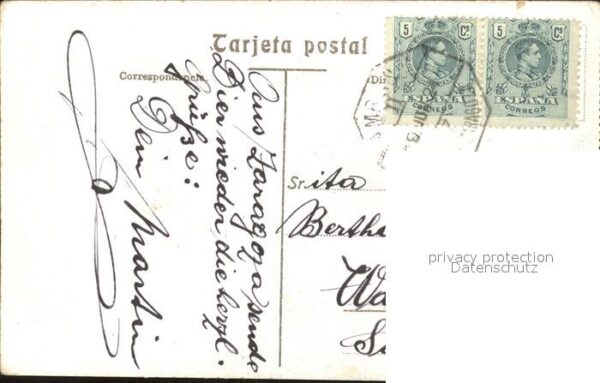 Tarjeta postal
Correspondencia
Aus Zaragoza sende
Dier wieder die herzl.
Grüße!
Dein
Martin
5 Cs 5 Cs
ESPAÑA ESPAÑA
CORREOS CORREOS
Sr.ita
Bertha
privacy protection
Datenschutz